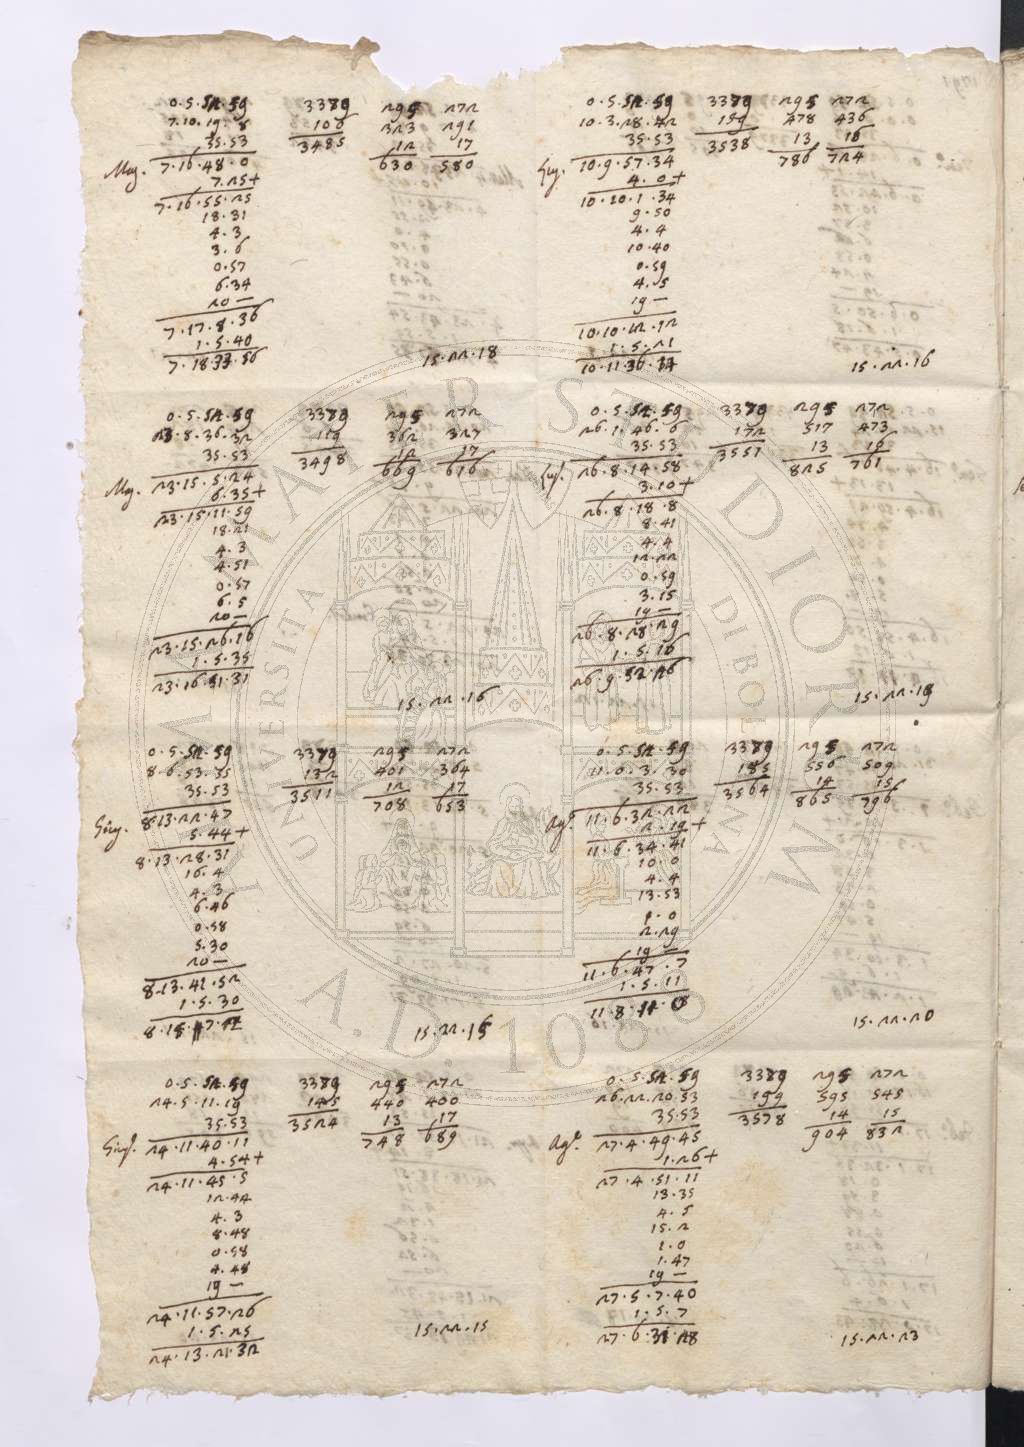 0.5.52.59 3379 295 272
7.10.19.8 106 323 291
35.53 12 17
May. 7.16.48.0 3485 630 580
7.25+
7.16.55.25
18.31
4.3
3.6
0.57
6.34
20 —
7.17.8.36
1.5.40
15.22.18
0.5.52.59 3379 295 272
10.3.28.42 159 478 436
35.53 13 16
Giug. 10.9.57.34 3538 786 724
4.0+
10.10.1.34
9.50
4.4
10.40
0.59
4.5
19 —
10.10.12.12
1.5.21
10.11.36.34
15.22.16
0.5.52.59 3379 295 272
23.8.36.32 119 362 327
35.53 12 17
May. 23.15.5.24 3498 669 616
6.35+
23.15.11.59
18.21
4.3
4.51
0.57
6.5
20 —
23.15.26.16
1.5.35
23.16.31.31
15.22.16
0.5.52.59 3379 295 272
26.1.46.6 172 517 473
35.53 13 16
Lugl. 26.8.14.58 3551 825 761
3.10+
26.8.18.8
8.41
4.4
12.22
0.59
3.15
19 —
26.8.28.29
1.5.16
15.22.19
0.5.52.59 3379 295 272
8.6.53.55 132 401 364
35.53 12 17
Giug. 8.13.22.47 3511 708 653
5.44+
8.13.28.31
16.4
4.3
6.46
0.58
5.30
20 —
8.13.41.52
1.5.30
15.22.15
0.5.52.59 3379 295 272
11.0.3.30 185 556 509
35.53 14 15
Agº. 11.6.32.22 3564 865 796
2.19+
11.6.34.41
10.0
4.4
13.53
1.0
2.29
19 —
11.6.47.7
1.5.11
15.22.20
0.5.52.59 3379 295 272
24.5.11.19 145 440 400
35.53 13 17
Giugº. 24.11.40.11 3524 748 689
4.54+
24.11.45.5
12.44
4.3
8.48
0.58
4.48
19 —
24.11.57.26
1.5.25
24.13.21.32
15.22.15
0.5.52.59 3379 295 272
26.22.20.53 199 595 545
35.53 14 15
Agº. 27.4.49.45 3578 904 832
1.26+
27.4.51.11
13.35
4.5
15.2
1.0
1.47
19 —
27.5.7.40
1.5.7
27.6.31.28
15.22.23
UNIVERSITÀ DI BOLOGNA
ALMA MATER STUDIORUM
A.D. 1088